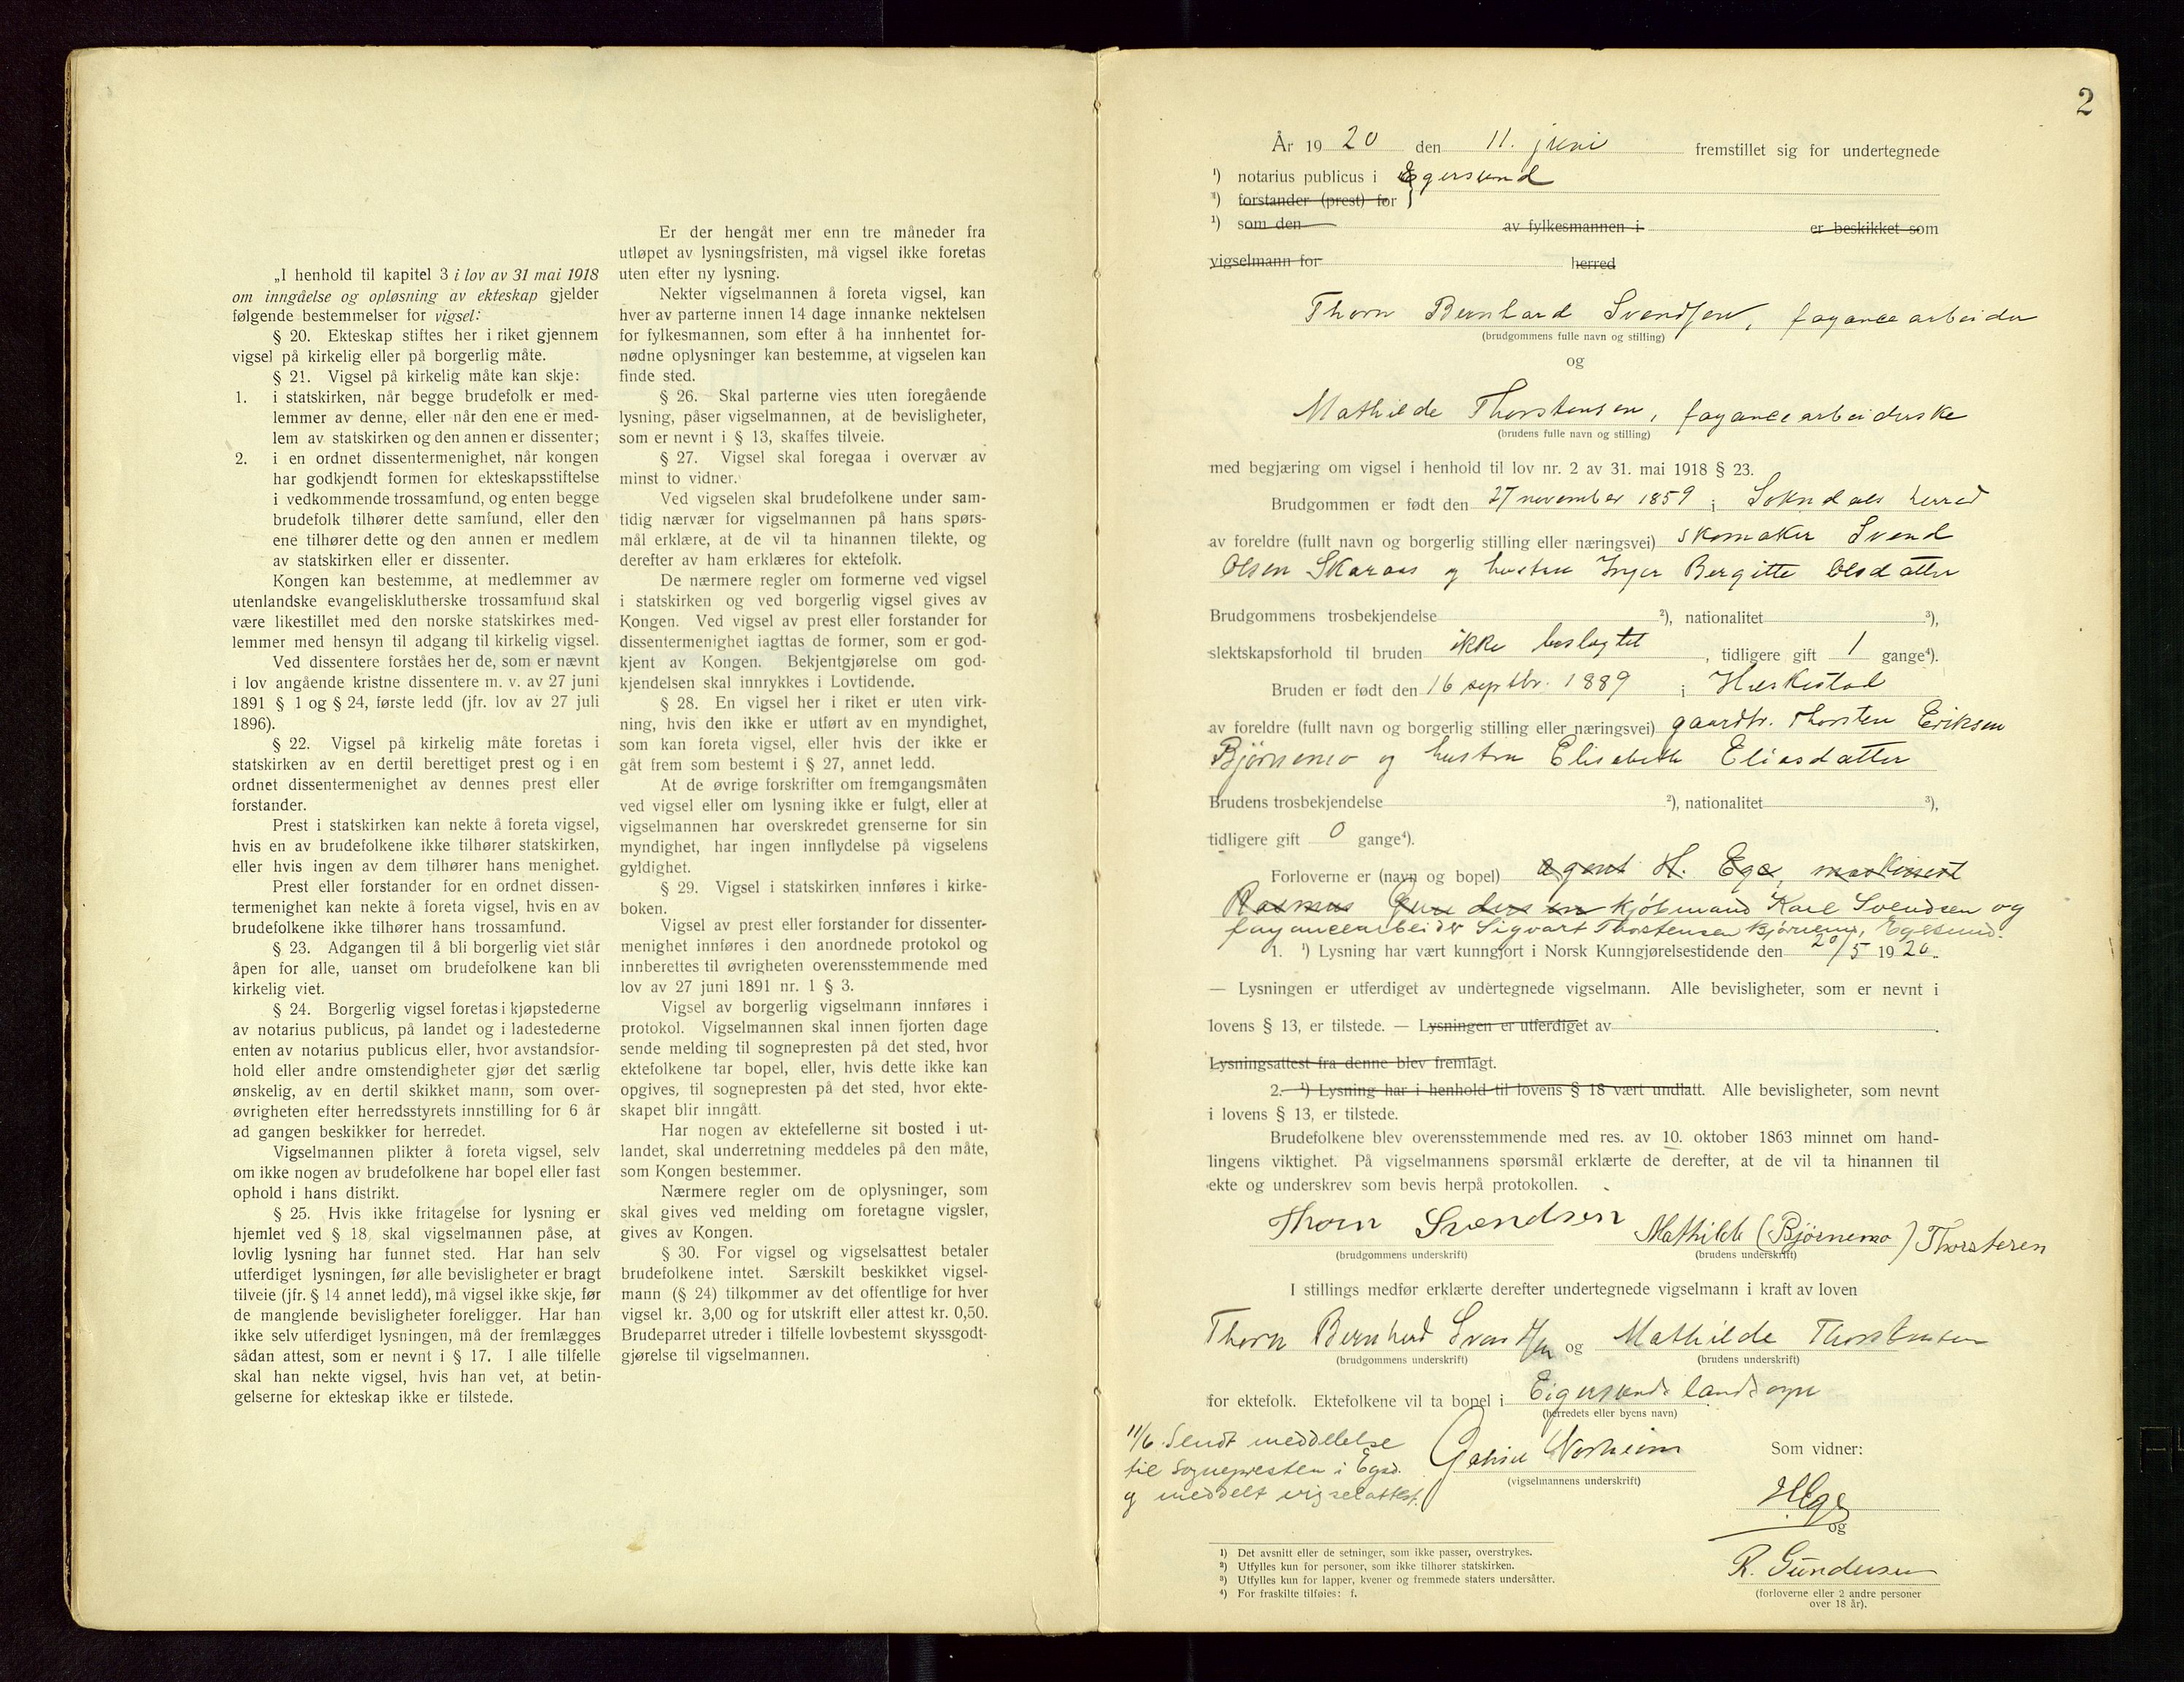 „I henhold til kapitel 3 i lov av 31 mai 1918
om inngåelse og opløsning av ekteskap gjelder
følgende bestemmelser for vigsel:
§ 20. Ekteskap stiftes her i riket gjennem
vigsel på kirkelig eller på borgerlig måte.
§ 21. Vigsel på kirkelig måte kan skje:
1. i statskirken, når begge brudefolk er med-
lemmer av denne, eller når den ene er med-
lem av statskirken og den annen er dissenter;
2. i en ordnet dissentermenighet, når kongen
har godkjendt formen for ekteskapsstiftelse
i vedkommende trossamfund, og enten begge
brudefolk tilhører dette samfund, eller den
ene tilhører dette og den annen er medlem
av statskirken eller er dissenter.
Kongen kan bestemme, at medlemmer av
utenlandske evangelisklutherske trossamfund skal
være likestillet med den norske statskirkes med-
lemmer med hensyn til adgang til kirkelig vigsel.
Ved dissentere forståes her de, som er nævnt
i lov angående kristne dissentere m. v. av 27 juni
1891 § 1 og § 24, første ledd (jfr. lov av 27 juli
1896).
§ 22. Vigsel på kirkelig måte foretas i
statskirken av en dertil berettiget prest og i en
ordnet dissentermenighet av dennes prest eller
forstander.
Prest i statskirken kan nekte å foreta vigsel,
hvis en av brudefolkene ikke tilhører statskirken,
eller hvis ingen av dem tilhører hans menighet.
Prest eller forstander for en ordnet dissen-
termenighet kan nekte å foreta vigsel, hvis en av
brudefolkene ikke tilhører hans trossamfund.
§ 23. Adgangen til å bli borgerlig viet står
åpen for alle, uanset om brudefolkene kan bli
kirkelig viet.
§ 24. Borgerlig vigsel foretas i kjøpstederne
av notarius publicus, på landet og i ladestederne
enten av notarius publicus eller, hvor avstandsfor-
hold eller andre omstendigheter gjør det særlig
ønskelig, av en dertil skikket mann, som over-
øvrigheten efter herredsstyrets innstilling for 6 år
ad gangen beskikker for herredet.
Vigselmannen plikter å foreta vigsel, selv
om ikke nogen av brudefolkene har bopel eller fast
ophold i hans distrikt.
§ 25. Hvis ikke fritagelse for lysning er
hjemlet ved § 18, skal vigselmannen påse, at
lovlig lysning har funnet sted. Har han selv
utferdiget lysningen, før alle bevisligheter er bragt
tilveie (jfr. § 14 annet ledd), må vigsel ikke skje, før
de manglende bevisligheter foreligger. Har han
ikke selv utferdiget lysningen, må der fremlægges
sådan attest, som er nevnt i § 17. I alle tilfelle
skal han nekte vigsel, hvis han vet, at betin-
gelserne for ekteskap ikke er tilstede.
Er der hengåt mer enn tre måneder fra
utløpet av lysningsfristen, må vigsel ikke foretas
uten efter ny lysning.
Nekter vigselmannen å foreta vigsel, kan
hver av parterne innen 14 dage innanke nektelsen
for fylkesmannen, som efter å ha innhentet for-
nødne oplysninger kan bestemme, at vigselen kan
finde sted.
§ 26. Skal parterne vies uten foregående
lysning, påser vigselmannen, at de bevisligheter,
som er nevnt i § 13, skaffes tilveie.
§ 27. Vigsel skal foregaa i overvær av
minst to vidner.
Ved vigselen skal brudefolkene under sam-
tidig nærvær for vigselmannen på hans spørs-
mål erklære, at de vil ta hinannen tilekte, og
derefter av ham erklæres for ektefolk.
De nærmere regler om formerne ved vigsel
i statskirken og ved borgerlig vigsel gives av
Kongen. Ved vigsel av prest eller forstander for
dissentermenighet iagttas de former, som er god-
kjent av Kongen. Bekjentgjørelse om god-
kjendelsen skal innrykkes i Lovtidende.
§ 28. En vigsel her i riket er uten virk-
ning, hvis den ikke er utført av en myndighet,
som kan foreta vigsel, eller hvis der ikke er
gåt frem som bestemt i § 27, annet ledd.
At de øvrige forskrifter om fremgangsmåten
ved vigsel eller om lysning ikke er fulgt, eller at
vigselmannen har overskredet grenserne for sin
myndighet, har ingen innflydelse på vigselens
gyldighet.
§ 29. Vigsel i statskirken innføres i kirke-
boken.
Vigsel av prest eller forstander for dissenter-
menighet innføres i den anordnede protokol og
innberettes til øvrigheten overensstemmende med
lov av 27 juni 1891 nr. 1 § 3.
Vigsel av borgerlig vigselmann innføres i
protokol. Vigselmannen skal innen fjorten dage
sende melding til sognepresten på det sted, hvor
ektefolkene tar bopel, eller, hvis dette ikke kan
opgives, til sognepresten på det sted, hvor ekte-
skapet blir inngått.
Har nogen av ektefellerne sit bosted i ut-
landet, skal underretning meddeles på den måte,
som Kongen bestemmer.
Nærmere regler om de oplysninger, som
skal gives ved melding om foretagne vigsler,
gives av Kongen.
§ 30. For vigsel og vigselsattest betaler
brudefolkene intet. Særskilt beskikket vigsel-
mann (§ 24) tilkommer av det offentlige for hver
vigsel kr. 3,00 og for utskrift eller attest kr. 0,50.
Brudeparret utreder i tilfelle lovbestemt skyssgodt-
gjørelse til vigselmannen.
2
År 1920 den 11. juni fremstillet sig for undertegnede
¹) notarius publicus i Egersund
¹) forstander (prest) for
¹) som den av fylkesmannen i er beskikket som
vigselmann for herred
Thorn Bernhard Svendsen, fayancearbeider
(brudgommens fulle navn og stilling)
og
Mathilde Thorstensen, fayancearbeiderske
(brudens fulle navn og stilling)
med begjæring om vigsel i henhold til lov nr. 2 av 31. mai 1918 § 23.
Brudgommen er født den 27 november 1859 i Sokndals herred
av foreldre (fullt navn og borgerlig stilling eller næringsvei) skomaker Svend
Olsen Skaraas og hustru Inger Bergitte Olsdatter
Brudgommens trosbekjendelse ²), nationalitet ³),
slektskapsforhold til bruden ikke beslagtet, tidligere gift 1 gange⁴).
Bruden er født den 16 septbr. 1889 i Hæskestad
av foreldre (fullt navn og borgerlig stilling eller næringsvei) gaardbr. Thorsten Eriksen
Bjørnemo og hustru Elisabeth Eliasdatter
Brudens trosbekjendelse ²), nationalitet ³),
tidligere gift 0 gange⁴).
Forloverne er (navn og bopel) agent H. Ege, maskinist
Rasmus Gundersen kjøbmand Karl Svendsen og
fayancearbeider Sigvart Thorstensen Bjørnemo, Egersund.
1. ¹) Lysning har vært kunngjort i Norsk Kunngjørelsestidende den 20/5 1920.
— Lysningen er utferdiget av undertegnede vigselmann. Alle bevisligheter, som er nevnt i
lovens § 13, er tilstede. — Lysningen er utferdiget av
Lysningsattest fra denne blev fremlagt.
2. ¹) Lysning har i henhold til lovens § 18 vært undlatt. Alle bevisligheter, som nevnt
i lovens § 13, er tilstede.
Brudefolkene blev overensstemmende med res. av 10. oktober 1863 minnet om hand-
lingens viktighet. På vigselmannens spørsmål erklærte de derefter, at de vil ta hinannen til
ekte og underskrev som bevis herpå protokollen.
Thorn Svendsen Mathilde (Bjørnemo) Thorstesen
(brudgommens underskrift) (brudens underskrift)
I stillings medfør erklærte derefter undertegnede vigselmann i kraft av loven
Thorn Bernhard Svendsen og Mathilde Thorstensen
(brudgommens underskrift) (brudens underskrift)
for ektefolk. Ektefolkene vil ta bopel i Eigersunds landsogn
(herredets eller byens navn)
11/6. Sendt meddelelse
til sognepresten i Egsd.
og meddelt vigselattest.
Gabriel Norheim
(vigselmannens underskrift)
Som vidner:
H Ege
og
R. Gundersen
(forloverne eller 2 andre personer
over 18 år).
¹) Det avsnitt eller de setninger, som ikke passer, overstrykes.
²) Utfylles kun for personer, som ikke tilhører statskirken.
³) Utfylles kun for lapper, kvener og fremmede staters undersåtter.
⁴) For fraskilte tilføies: f.